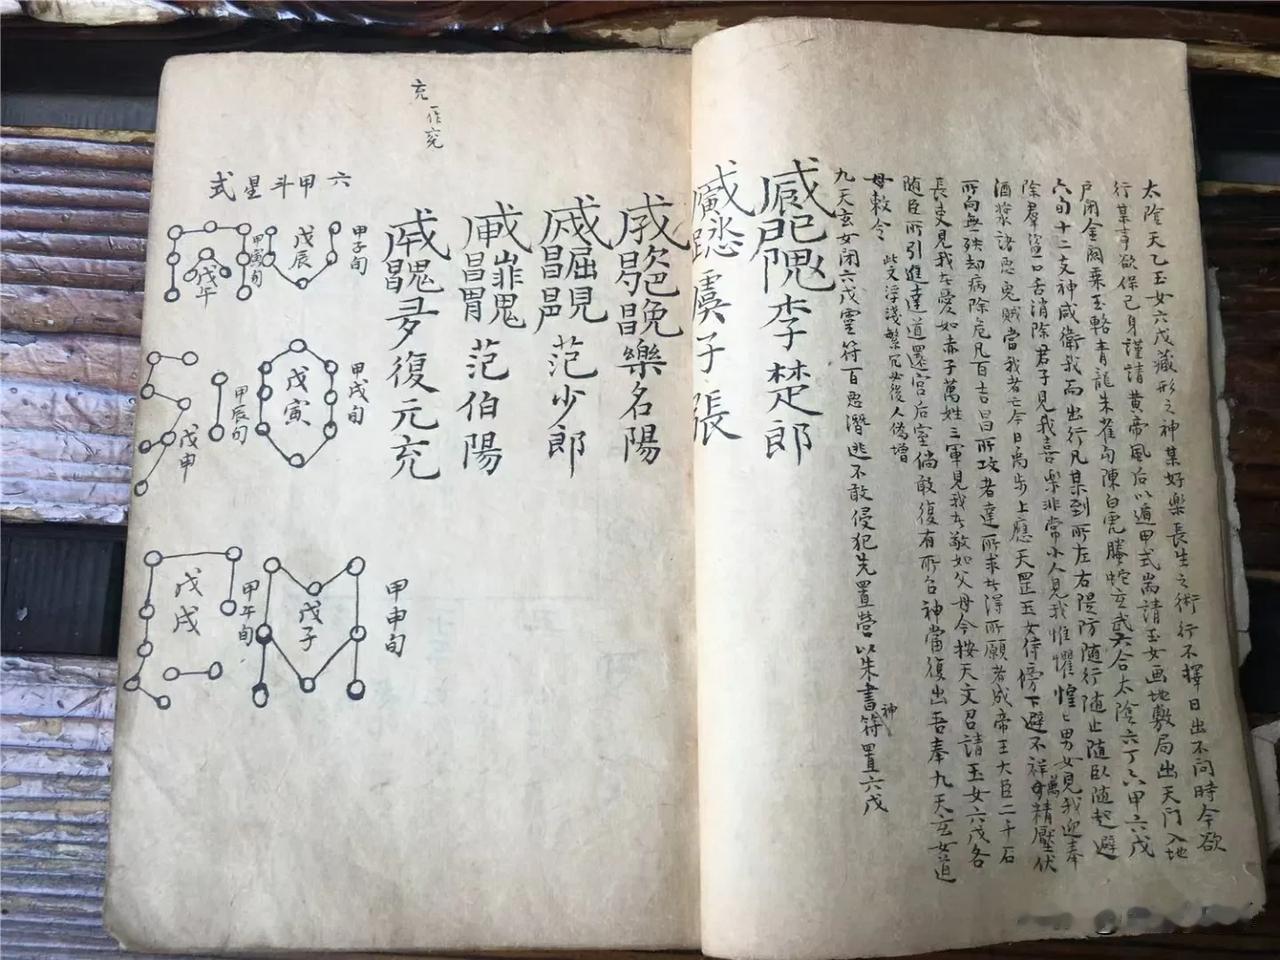 太陰天乙玉女六戊藏形之神某好樂長生之術行不擇日出不問時今欲
行某事欲保己身謹請黄帝風后以遁甲式耑請玉女画地敷局出天門入地
戶閉金闕乗玉輅青龍朱雀勾陳白虎螣蛇玄武六合太陰六丁六甲六戊
六旬十二支神咸衛我而出行凡某到所左右隄防随行随止随臥随起避
除羣盜口舌消除君子見我喜樂非常小人見我惟懼惶々男女見我迎奉
酒漿諸惡鬼賊當我者亡今日禹步上應天罡玉女侍傍下避不祥萬精壓伏
所向無殃却病除危凡百吉昌所攻者達所求者得所願者成帝王大臣二千石
長吏見我者愛如赤子萬姓三軍見我者敬如父母今按天文召請玉女六戊各
随臣所引進達道還宮后室倘敢復有所召神當復出吾奉九天玄女道
母敕令
此文浮淺繁冗必後人偽增
九天玄女閉六戊靈符百惡潛逃不敢侵犯先置営以朱書神符置六戊
李楚郎
虞子張
樂名陽
范少郎
范伯陽
復元充
充一作兖
六甲斗星式
甲子旬
戊辰
甲寅旬
戊午
甲戌旬
戊寅
甲辰旬
戊申
甲申旬
戊子
甲午旬
戊戌